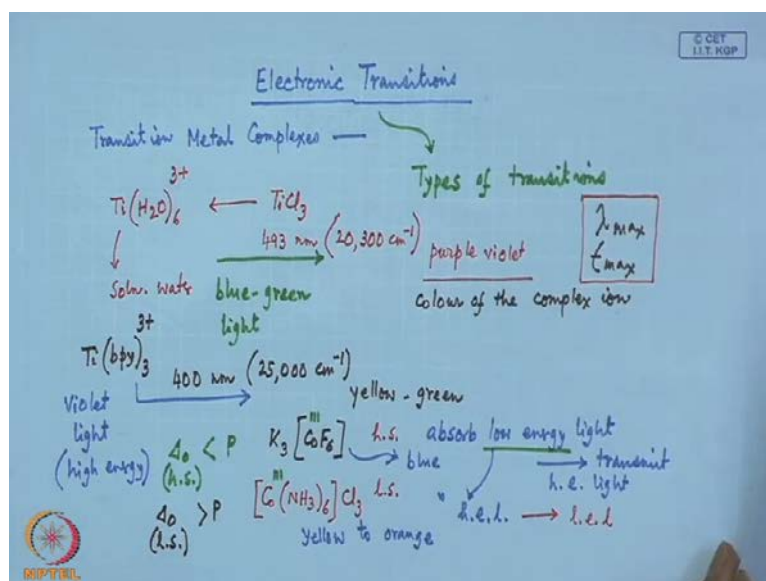 © CET
I.I.T. KGP
Electronic Transitions
Transition Metal Complexes —
Types of transitions
Ti(H2O)6 3+ ← TiCl3
493 nm (20,300 cm-1)
purple violet
λmax
ϵmax
Soln. water
blue-green light
colour of the complex ion
Ti(bpy)3 3+
400 nm (25,000 cm-1)
yellow-green
violet light (high energy)
Δo < P
(h.s.)
K3[CoIIIF6] h.s.
blue
absorb low energy light
→ transmit h.e. light
Δo > P
(l.s.)
[CoIII(NH3)6]Cl3 l.s.
yellow to orange
" h.e.l. → l.e.l
NPTEL